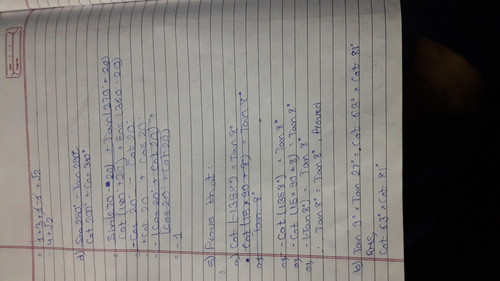 = 1 + 3 + 1 - 1 + √2
= 4 + √2
d) Sin 250° + Tan 290°
Cot 200° + Cos 340°
= Sin(270° - 20) + Tan(270° + 20)
Cot(180° + 20) + Cos(360 - 20)
= - Cos 20° - Cot 20°
+ Cot 20° + Cos 20
= - (Cos 20° + Cot 20°)
(Cos 20 + Cot 20)
= -1
5) Prove that:
a) Cot(-1358°) = Tan 8°
Cot(15 × 90 + 8) = Tan 8°
or Tan 8°
or, - Cot(1358°) = Tan 8°
or, - Cot(15 × 90 + 8) = Tan 8°
or, - (-Tan 8°) = Tan 8°
∴ Tan 8° = Tan 8°, Proved
b) Tan 9° × Tan 27° = Cot 63° × Cot 81°
RHS,
Cot 63° × Cot 81°